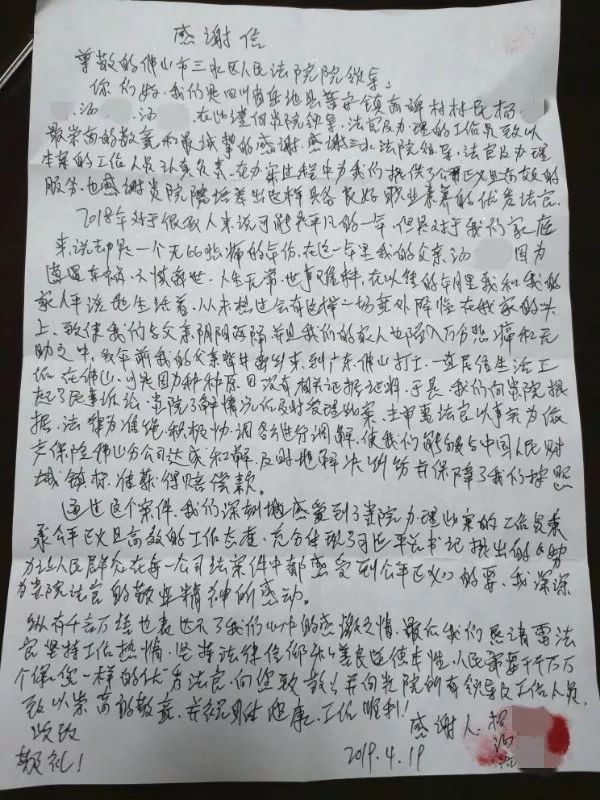 感谢信
尊敬的佛山市三水区人民法院院领导：
你们好，我们是四川省岳池县 镇 村村民杨
汤 汤 在此谨向贵院领导、法官及办理的工作人员致以
最崇高的敬意和最诚挚的感谢。感谢三水法院领导、法官及办理
本案的工作人员认真负责，在办案过程中为我们提供了公平正义且高效的
服务，也感谢贵院陪培养出这样具备良好职业素养的优秀法官。
2018年对于很多人来说可能是平凡的一年，但是对于我们家庭
来说却是一个无比悲痛的年份，在这一年里我的父亲汤 因为
遭遇车祸，不慎辞世，人生无常，世事难料，在以往的年月里我和我的
家人平淡地生活着，从未想过会有这样一场意外降临在我家的头
上，致使我们与父亲阴阳两隔并且我们的家人也深入万分悲痛和无
助之中，多年前我的父亲背井离乡来到广东佛山打工，一直居住生活工
作在佛山，可是因为种种原因没有相关证据证明，于是，我们向贵院提
起了民事诉讼，贵院了解情况后及时受理此案，主审 法官以事实为依
据，法律为准绳，积极协调各方进行调解，使我们能够与中国人民财
产保险佛山分公司达成和解，及时地解决纠纷并保障了我们按照
城镇标准获得赔偿款。
通过这个案件，我们深刻地感受到了贵院办理此案的工作人员秉
承公平正义且高效的工作态度，充分体现习近平总书记提出的《努
力让人民群众在每一个司法案件中都感受到公平正义》的要，我深深
为贵院法官的敬业精神所感动。
纵有千言万语也表达不了我们心中的感激之情，最后我们恳请 法
官坚持工作热情，坚持法律信仰和善良道德本性，人民需要千千万万
个像您一样的优秀法官，向您致敬！并向贵院所有领导及工作人员
致以崇高的敬意，并祝身体健康，工作顺利！
此致
敬礼！
感谢人：杨
汤
汤
2019.4.19